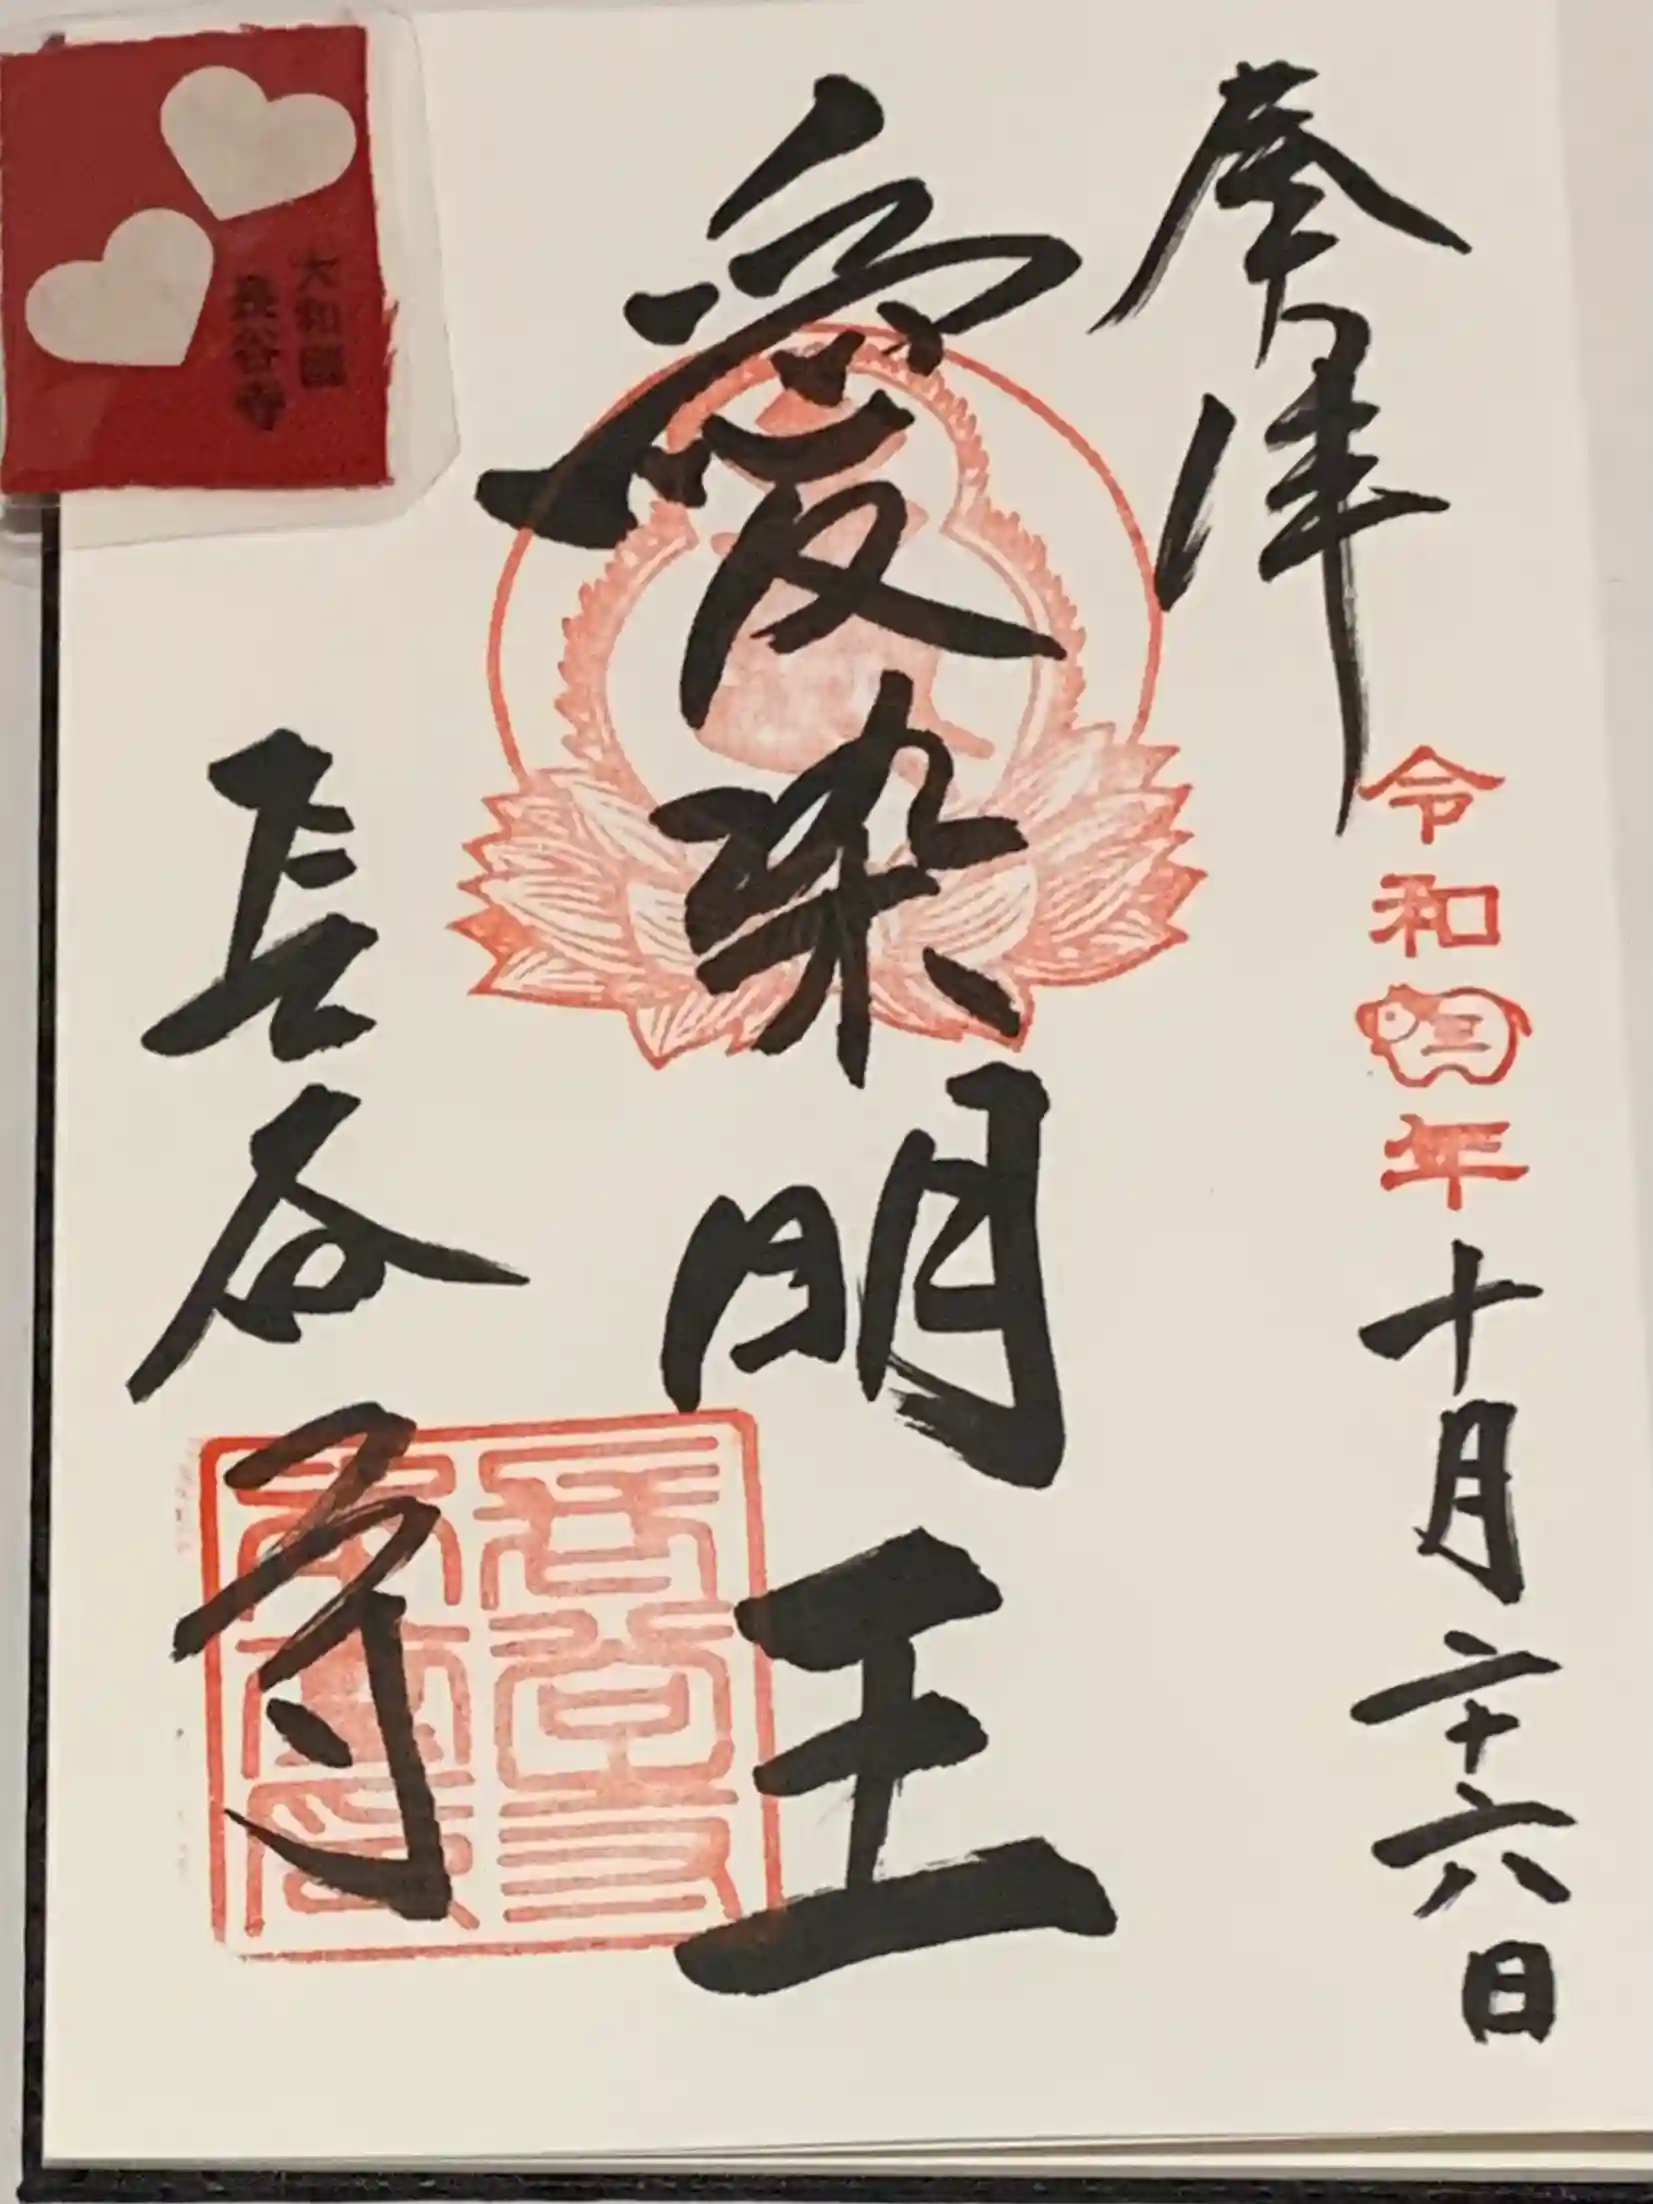 奉拝
令和三年十月二十六日
愛染明王
長谷寺
大和國
長谷寺